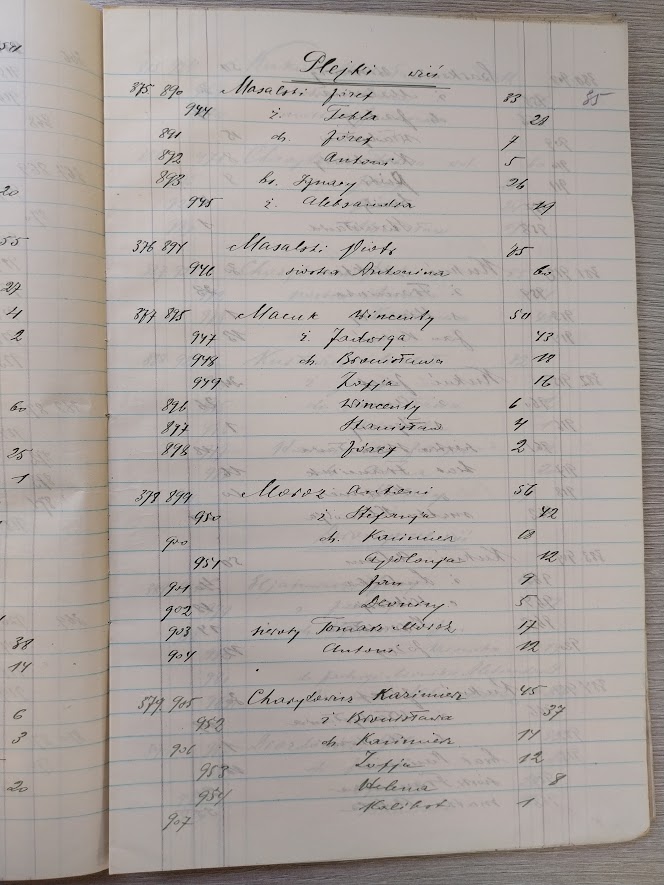 Plejki wieś
85
375 890 Masalski Józef 33
944 ż. Tekla 28
891 dz. Józef 7
892 Antoni 5
893 br. Ignacy 26
945 ż. Aleksandra 19
376 894 Masalski Piotr 75
946 siostra Antonina 60
377 895 Macuk Wincenty 50
947 ż. Jadwiga 43
948 dz. Bronisława 18
949 Zofja 16
896 Wincenty 6
897 Stanisław 4
898 Józef 2
378 899 Moroz Antoni 56
950 ż. Stefanja 42
900 dz. Kazimierz
951 Apolonja 12
901 Jan 9
902 5
903 sieroty Tomasz Moroz 17
904 Antoni 12
379 905 Kazimierz 45
952 ż Bronisława 37
906 dz. Kazimierz 14
953 Zofja 12
954 Helena 8
907 1
20
55
27
4
2
60
25
1
38
14
6
3
20